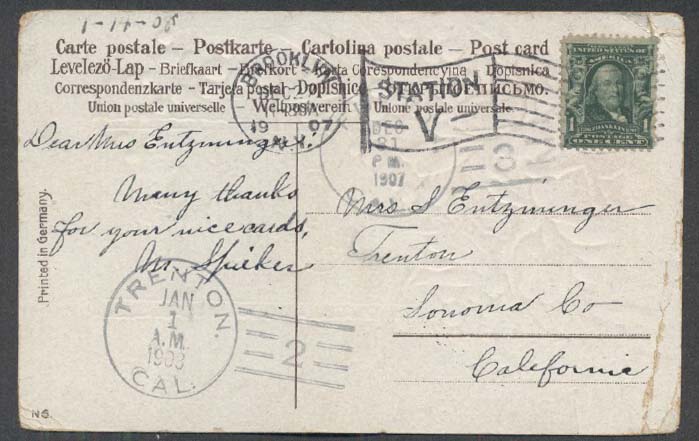 Carte postale – Postkarte – Cartolina postale – Post card
Levelező-Lap – Briefkaart – Brefkort – Karta Corespondencyjna – Dopisnica
Correspondenzkarte – Tarjeta postal – Dopisnice – ОТКРЫТОЕ ПИСЬМО.
Union postale universelle – Weltpostverein – Unione postale universale.
BROOKLYN
DEC
1907
N.Y.
STATION
V
UNITED STATES OF
AMERICA
1
FRANKLIN
ONE CENT
DEC
21
P.M.
1907
3
Dear Mrs Entzminger,
Many thanks
for your nice cards,
M. Spieker
Mrs S Entzminger
Trenton
Sonoma Co
California
Printed in Germany.
TRENTON.
JAN
1
A.M.
1908
CAL.
2
NS.